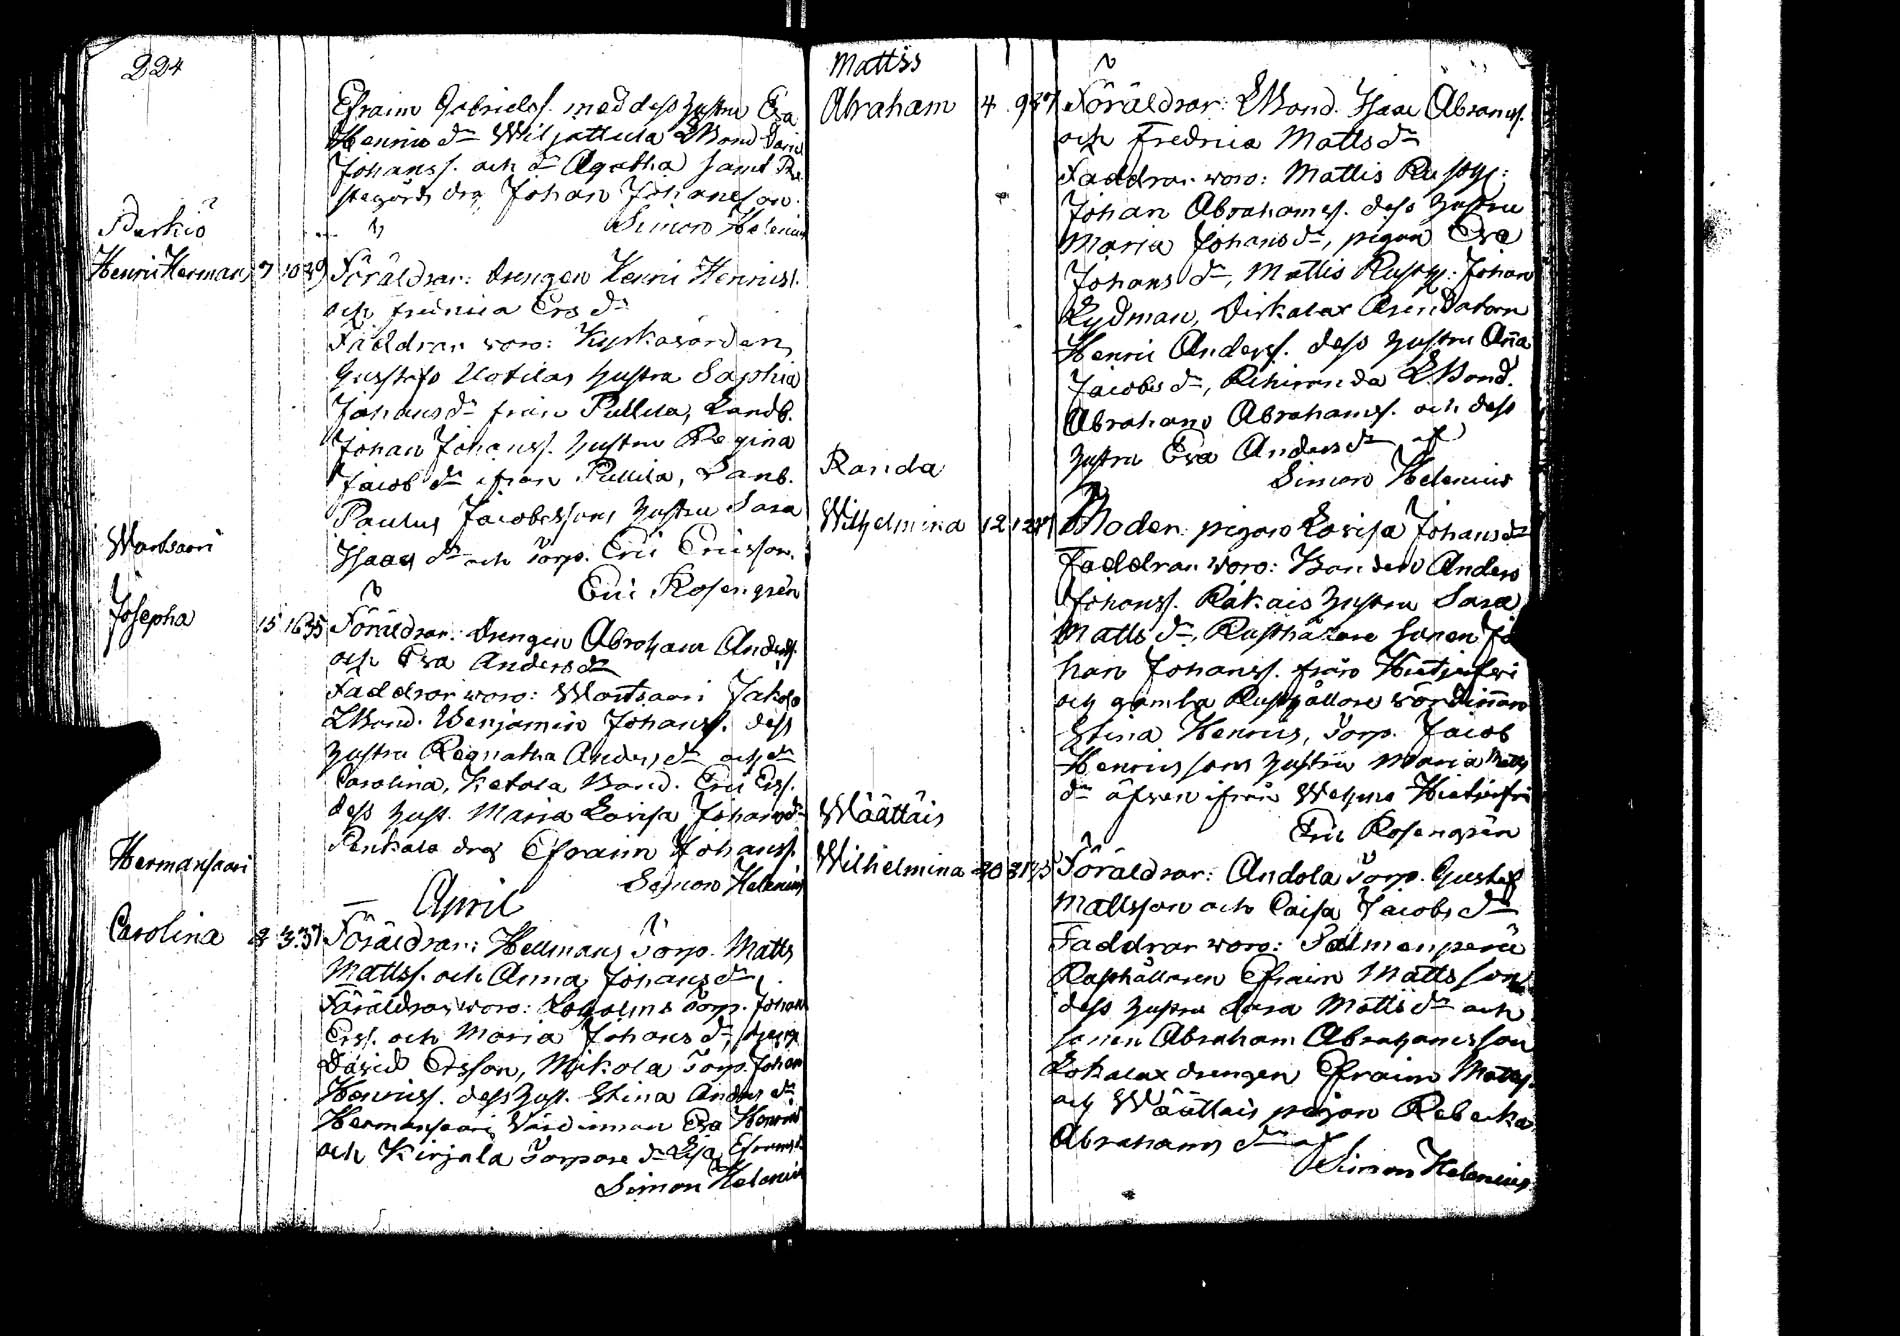 224
Efraim Gabrielss. med dess hustru Eva
Henrics dr Wiljattula LBond David
Johanss. och dr Agatha samt Pre
stegårds drg Johan Johansson.
Simon Helenius
Parkio
Henric Herman 7 10 29 Föräldrar: drengen Henric Henricss.
och Fredrica Ers dr
Faddrar woro: Kyrkovärden
Gustafs Uotilas hustru Sophia
Johans dr från Pullila, Landb.
Johan Johanss. hustru Regina
Jacob dr ifrån Pullila, Lanb.
Paulus Jacobssons hustru Sara
Isaacs dr och Torp. Eric Ericsson.
Eric Rosengrén
Wartsaari
Josepha 15 16 35 Föräldrar: drengen Abraham Anderss.
och Eva Anders dr
Faddrar woro: Wartsaari Jakola
LBond. Benjamin Johanss. dess
hustru Regnatha Anders dr och dr
Carolina, Ketola Bond. Eric Erss.
dess hust. Maria Lovisa Johans dr
Penkala drg Efraim Johanss.
Simon Helenius
April
Hermansaari
Carolina 2 3 37 Föräldrar: Hellmans Torp. Matts
Mattss. och Anna Johans dr
Föräldrar woro: Torp. Johan
Erss. och Maria Johans dr, dreng
David Ersson, Mikola Torp. Johan
Henricss. dess hust. Stina Anders dr
Hermansaari Värdinnan Eva Henrics
och Kirjala Torpare dr Lisa Efraims
Simon Helenius
Mattis
Abraham 4 9 27 Föräldrar: LBond. Isaac Abramss.
och Fredrica Matts dr
Faddrar woro: Mattis Rusth:
Johan Abrahamss. dess hustru
Maria Johans dr, pigan Eva
Johans dr, Mattis Rusth: Johan
Lydman, Arendatorn
Henric Anderss. dess hustru Anna
Jacobs dr, LBond.
Abraham Abrahamss. och dess
hustru Eva Anders dr af
Simon Helenius
Randa
Wilhelmina 12 12 27 Moder: pigan Lovisa Johans dr
Faddrar woro: Bonden Anders
Johanss. Rakais hustru Sara
Matts dr, Rusthållare sonen Jo
han Johanss. från Hietjärfwi
och gamla Rusthållare Värdinnan
Stina Henrics, Torp. Jacob
Henricssons hustru Maria Matts
dr äfwen ifrån Wehmo
Eric Rosengrén
Wäättäis
Wilhelmina 20 21 35 Föräldrar: Andola Torp. Gustaf
Mattsson och Caisa Jacobs dr
Faddrar woro: Salmenperä
Rusthållaren Efraim Mattsson
dess hustru Sara Matts dr och
sonen Abraham Abrahamsson
Lokalax drengen Efraim Mattss.
och Wäättäis pigan Rebecka
Abrahams dr af
Simon Helenius